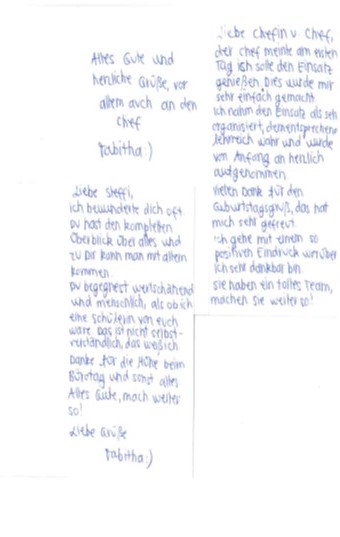 Alles Gute und
herzliche Grüße, vor
allem auch an den
Chef
Tabitha :)
Liebe Steffi,
ich bewunderte dich oft
Du hast den kompletten
Überblick über alles und
zu Dir kann man mit allem
kommen
Du begegnest wertschätzend
und menschlich, als ob ich
eine Schülerin von euch
wäre Das ist nicht selbst-
verständlich, das weiß ich
Danke für die Mühe beim
Bürotag und sonst alles
Alles Gute, mach weiter
so!
Liebe Grüße
Tabitha :)
Liebe Chefin u. Chef,
der Chef meinte am ersten
Tag ich solle den Einsatz
genießen. Dies wurde mir
sehr einfach gemacht
Ich nahm den Einsatz als seh
organisiert, dementsprechend
lehrreich wahr und wurde
von Anfang an herzlich
aufgenommen
Vielen Dank für den
Geburtstagsgruß, das hat
mich sehr gefreut.
Ich gehe mit einem so
positiven Eindruck worüber
ich sehr dankbar bin
Sie haben ein tolles Team,
machen sie weiter so!